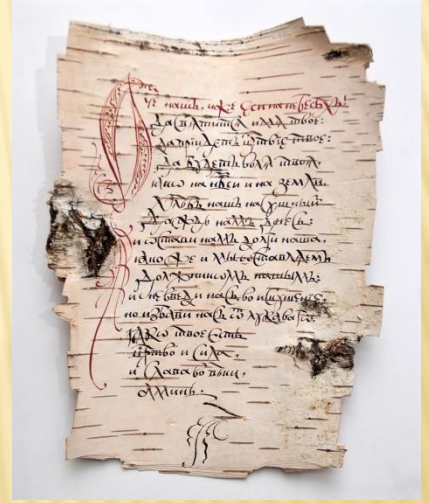 Ѻтче нашъ, иже еси на небесѣхъ!
Да свѧтитсѧ имѧ твое:
да придетъ црⷭтвїе твое:
да будетъ волѧ твоѧ,
ꙗко на нбси и на земли.
Хлѣбъ нашъ насущный
даждь намъ днесь:
и остави намъ долги наша,
ꙗкоже и мы оставлѧемъ
должникомъ нашымъ:
и не введи насъ во искушенїе,
но избави насъ ѿ лукаваго.
ꙗко твое есть
црⷭтво и сила,
и слава во вѣки,
аминь.